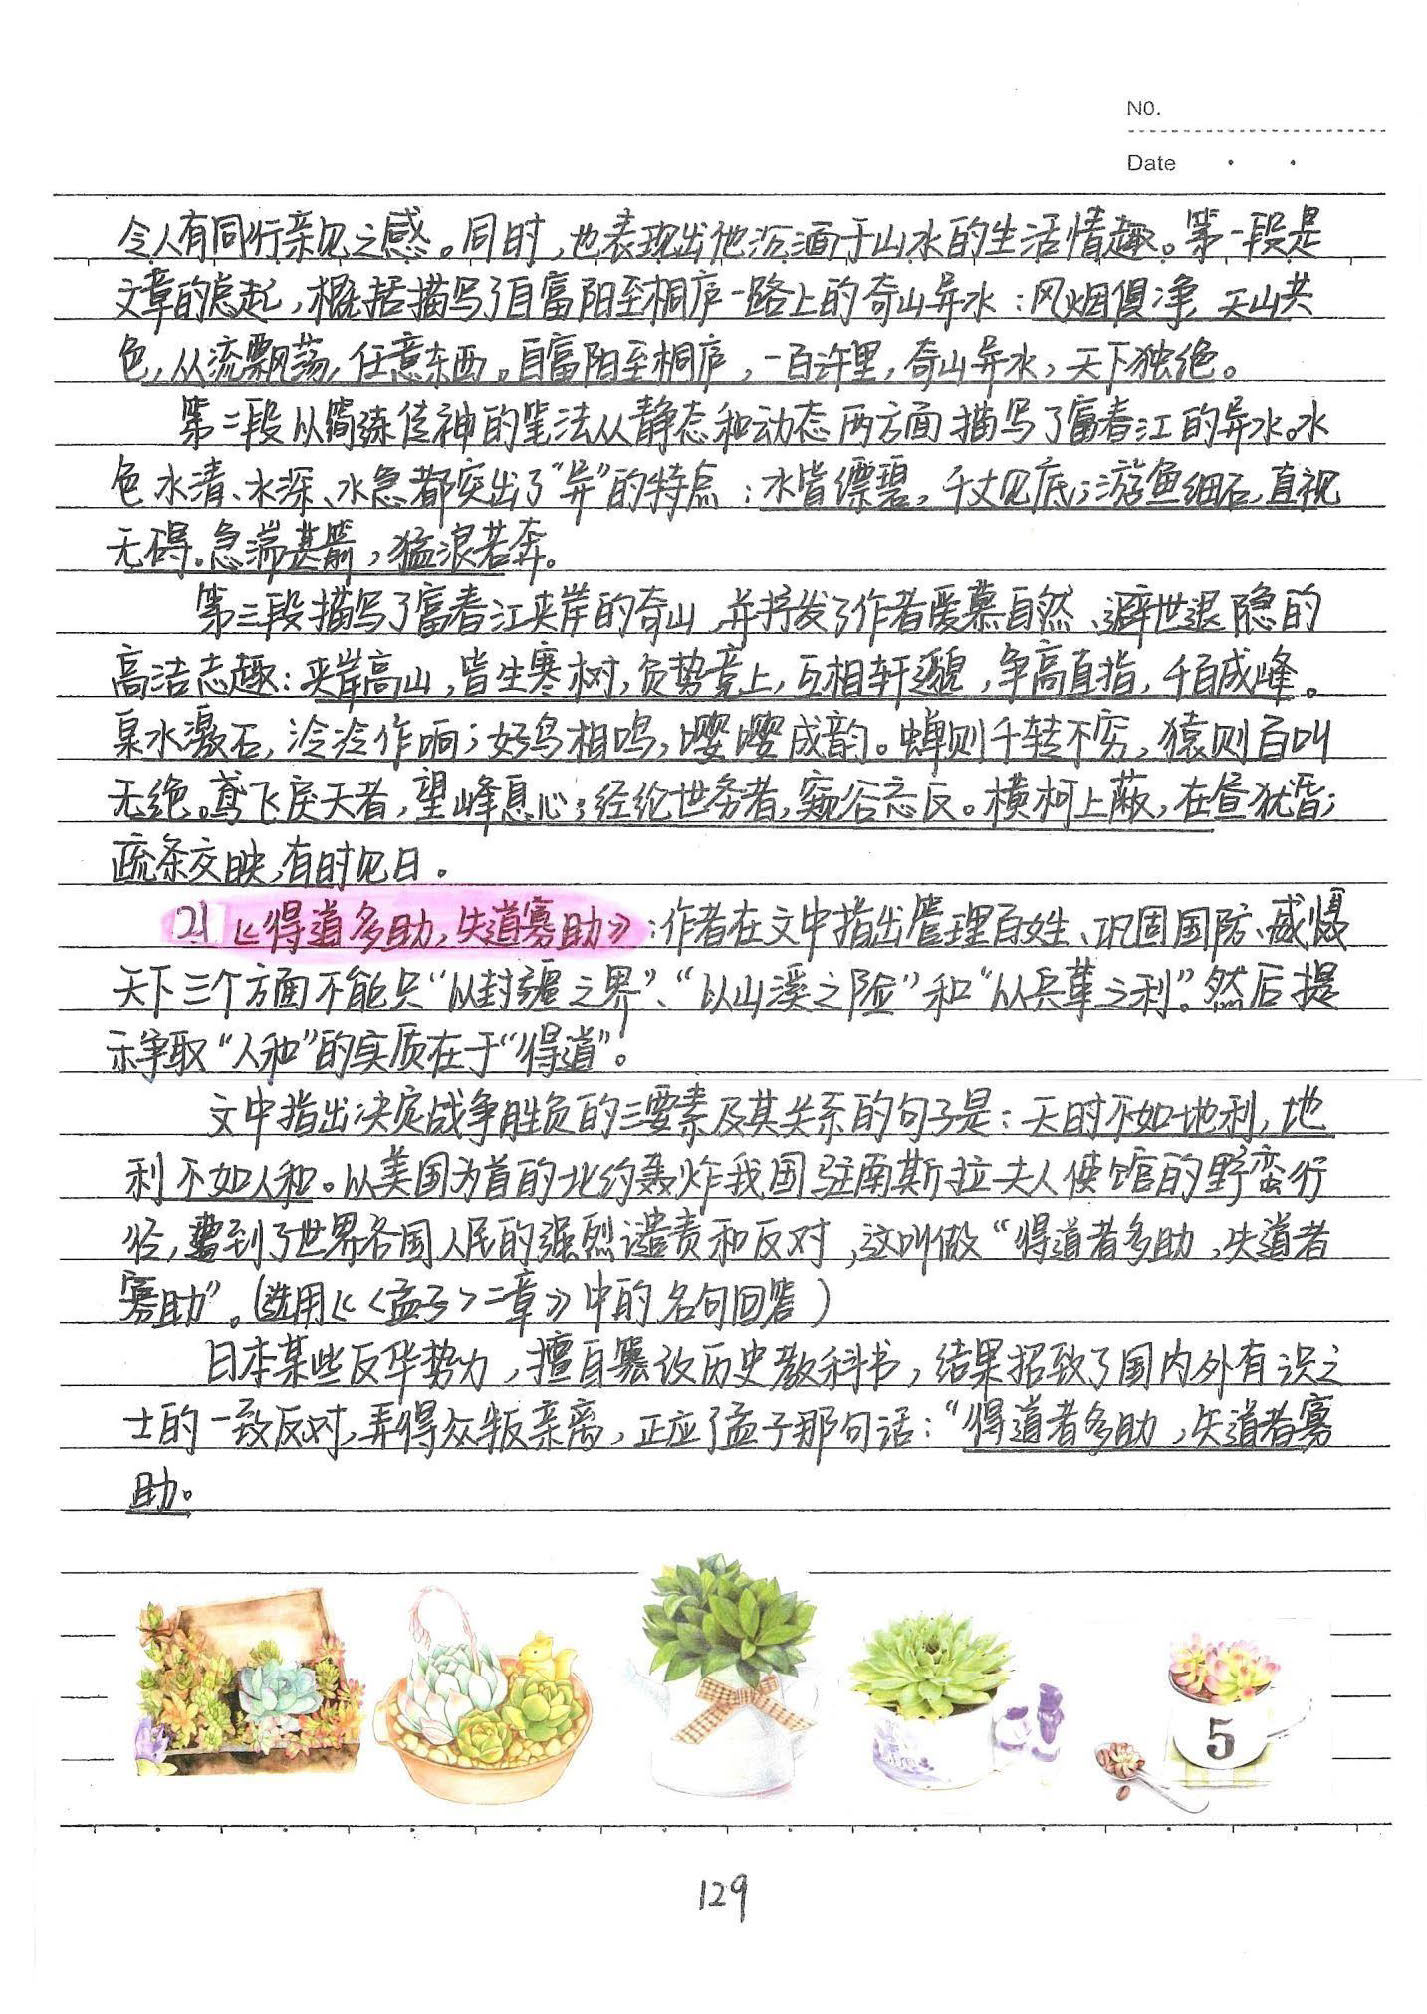 NO.
Date
令人有同行亲见之感。同时,也表现出他沉湎于山水的生活情趣。第一段是
文章的总起,概括描写了自富阳至桐庐一路上的奇山异水:风烟俱净,天山共
色,从流飘荡,任意东西。自富阳至桐庐,一百许里,奇山异水,天下独绝。
第二段以简练传神的笔法从静态和动态两方面描写了富春江的异水。水
色水清、水深、水急都突出了“异”的特点:水皆缥碧,千丈见底;游鱼细石,直视
无碍。急湍甚箭,猛浪若奔。
第三段描写了富春江夹岸的奇山,并抒发了作者爱慕自然、避世退隐的
高洁志趣:夹岸高山,皆生寒树,负势竞上,互相轩邈,争高直指,千百成峰。
泉水激石,泠泠作响;好鸟相鸣,嘤嘤成韵。蝉则千转不穷,猿则百叫
无绝。鸢飞戾天者,望峰息心;经纶世务者,窥谷忘反。横柯上蔽,在昼犹昏;
疏条交映,有时见日。
21《得道多助,失道寡助》:作者在文中指出管理百姓、巩固国防、威慑
天下三个方面不能只“以封疆之界”、“以山溪之险”和“以兵革之利”。然后提
示争取“人和”的实质在于“得道”。
文中指出决定战争胜负的三要素及其关系的句子是:天时不如地利,地
利不如人和。以美国为首的北约轰炸我国驻南斯拉夫人使馆的野蛮行
径,遭到了世界各国人民的强烈谴责和反对,这叫做“得道者多助,失道者
寡助”。(选用《<孟子>二章》中的名句回答)
日本某些反华势力,擅自篡改历史教科书,结果招致了国内外有识之
士的一致反对,弄得众叛亲离,正应了孟子那句话:“得道者多助,失道者寡
助。
5
129